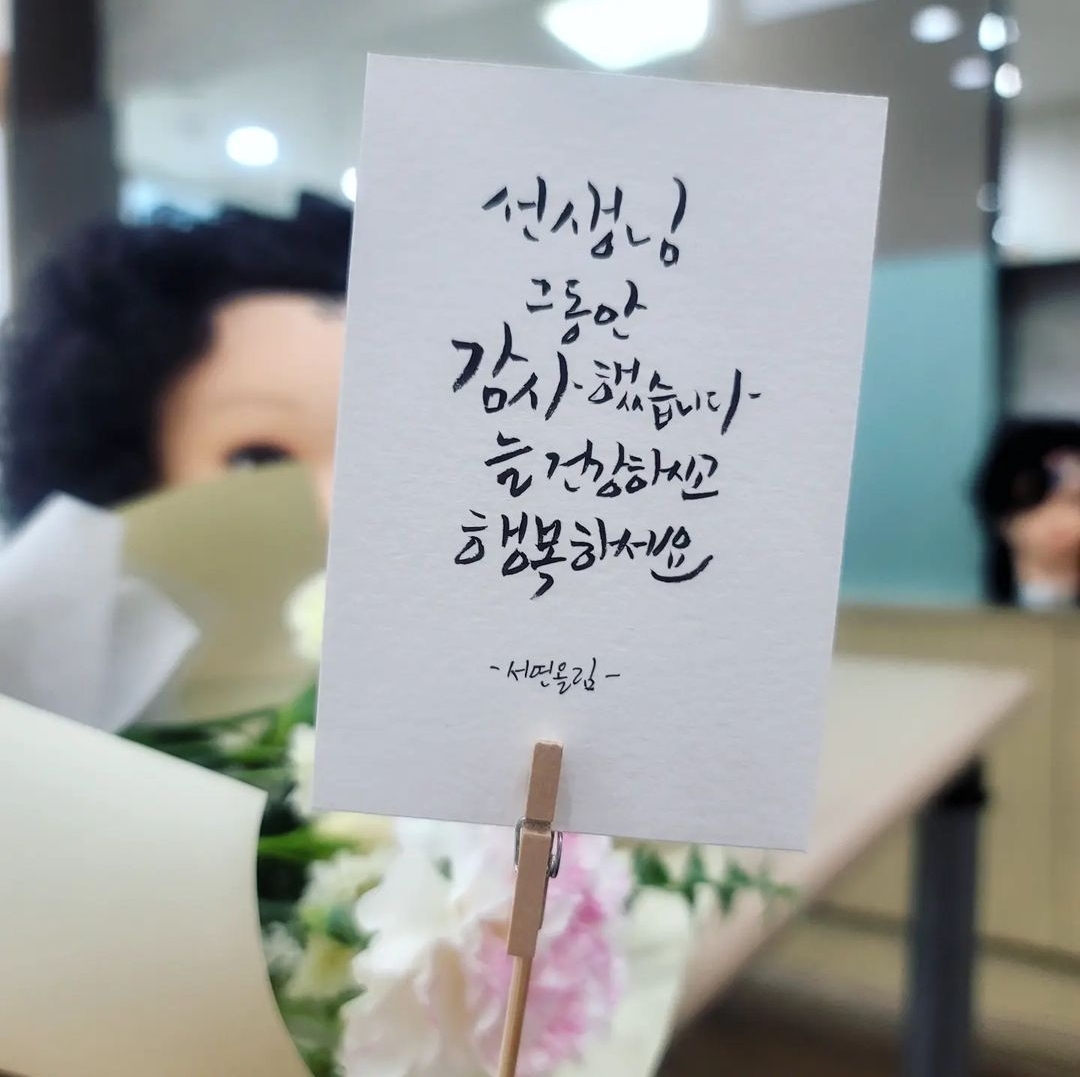 선생님
그동안
감사했습니다
늘 건강하시고
행복하세요
-서연올림-